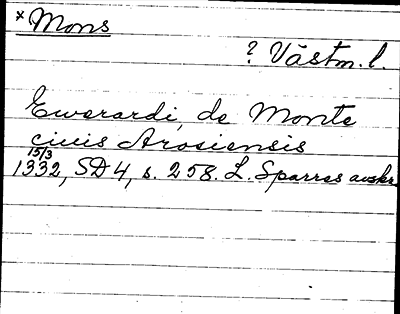 *Mons
? Västm. l.
Ewerardi, de Monte
civis Arosiensis
15/3
1332, SD 4, s. 258. L. Sparres avskr.